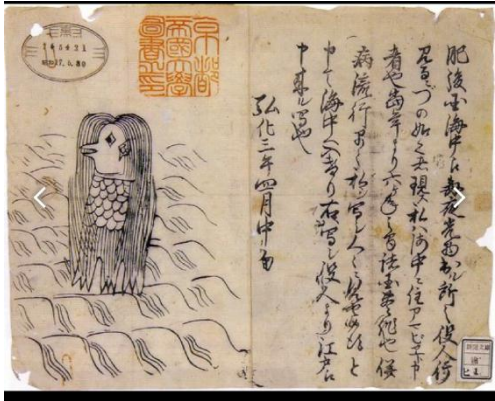 肥後国海中え毎夜光物出ル所之役人行
見るニづの如之者現ス私ハ海中ニ住アマビヱト申
者也當年より六ヶ年之間諸国豊作也併
病流行早々私ヲ写シ人々ニ見セ候得と
申て海中へ入けり右写シ役人より江戸え
申来ル写也
弘化三年四月中旬
京都
帝國大學
圖書之印